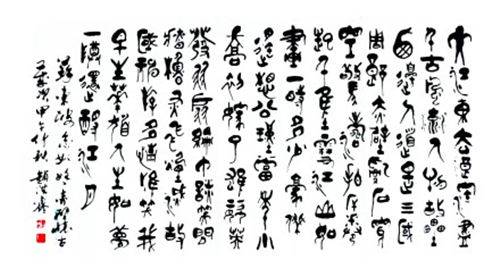 大江東去浪淘盡
千古風流人物故壘
西邊人道是三國
周郎赤壁亂石
穿空驚濤拍岸捲
起千堆雪江山如
畫一時多少豪傑
遙想公瑾當年小
喬初嫁了雄姿英
發羽扇綸巾談笑間
檣櫓灰飛煙滅故
國神遊多情應笑我
早生華髮人生如夢
一樽還酹江月
蘇東坡念奴嬌赤壁懷古